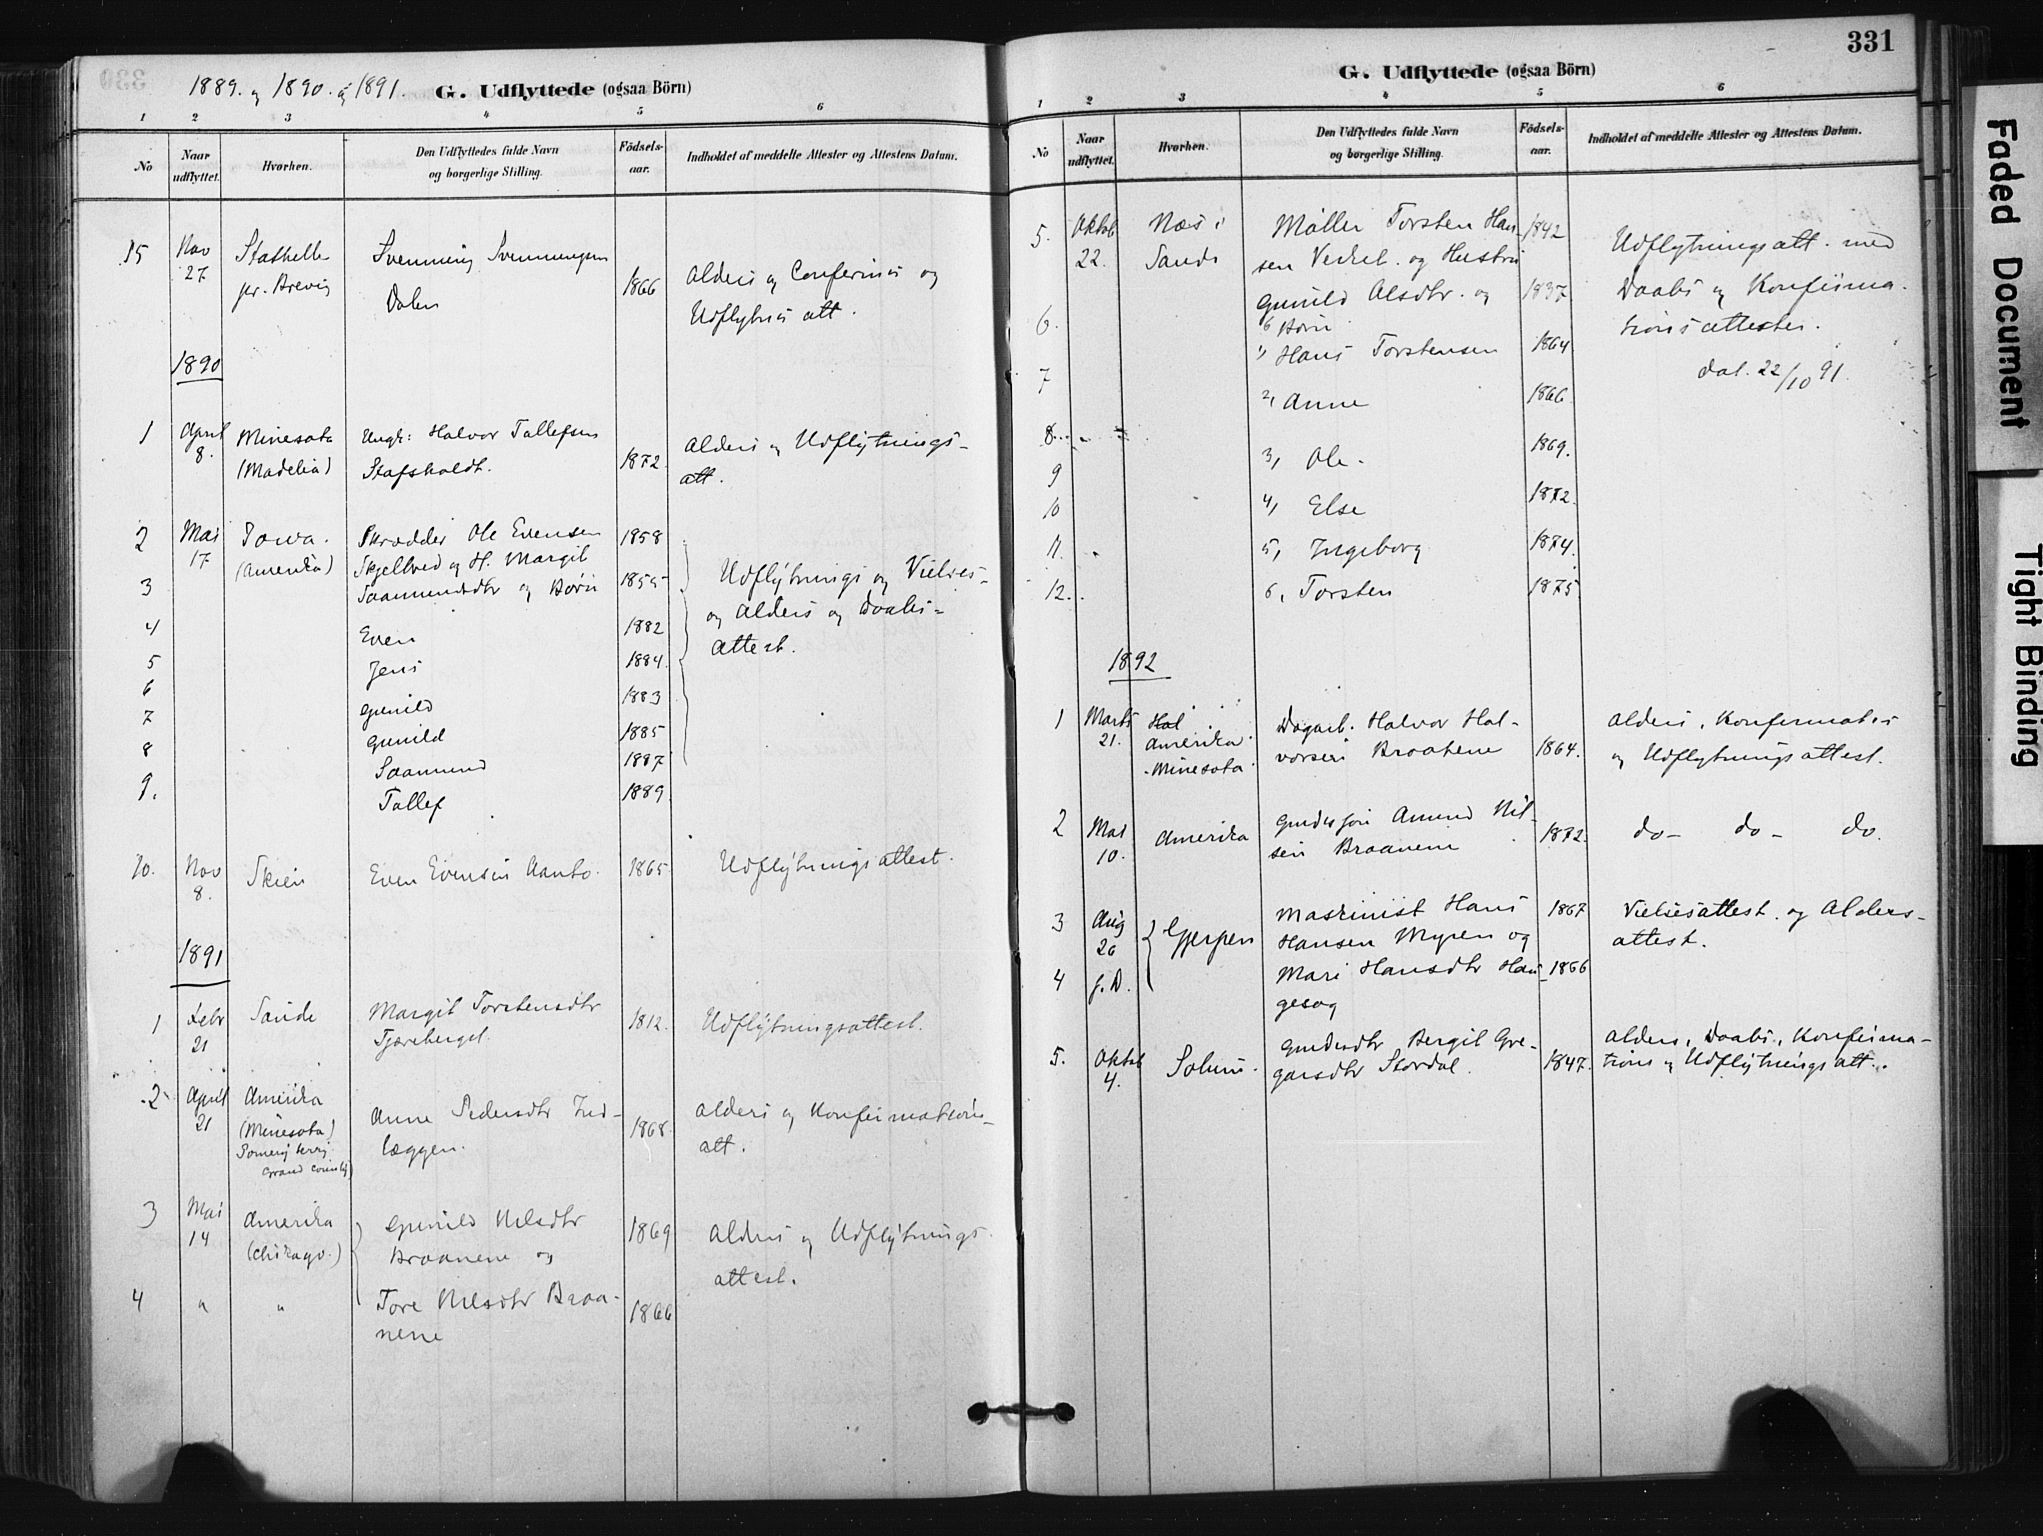 1889. og 1890. og 1891.
G. Udflyttede (ogsaa Börn)
1 2 3 4 5 6
No
Naar udflyttet.
Hvorhen.
Den Udflyttedes fulde Navn og borgerlige Stilling.
Födsels-aar.
Indholdet af meddelte Attester og Attestens Datum.
15 Nov 27 Stathelle pr. Brevig
Svenning Svenningsen
Dalen
1866
Alders og Conferms og
Udflytnis att.
1890
1 April 8. Minesota (Madelia)
Ungk: Halvor Tallefsen
Stafsholdt.
1872
Alders og Udflytnings-
att.
2 Mai 17 Iowa. (Amerika)
Skrædder Ole Evensen 1858
Skjelbred og H. Margit
3 Saamundsdtr og Børn 1855
Udflytnings og Vielses-
og Alders og Daabs-
attest.
4 Even 1882
5 Jens 1884.
6 Gunild 1883
7 Gunild 1885
8 Saamund 1887
9. Tallef 1889.
10. Nov 8. Skien
Even Evensen Aanto.
1865
Udflytningsattest.
1891
1 Febr 21 Sande
Margit Torstensdtr
Tjæreberget.
1812.
Udflytningsattest.
2 April 21 Amerika (Minesota)
Grand County)
Anne Pedersdtr Ind-
læggen.
1868.
Alders og Konfirmations-
att.
3 Mai 14 Amerika (Chikago.)
Gunild Nilsdtr
Braanene og
1869
Alders og Udflytnings
attest.
4 " "
Tore Nilsdtr Braa-
nene
1866
331
G. Udflyttede (ogsaa Börn)
1 2 3 4 5 6
No
Naar udflyttet.
Hvorhen.
Den Udflyttedes fulde Navn og borgerlige Stilling.
Födsels-aar.
Indholdet af meddelte Attester og Attestens Datum.
5. Oktob 22. Næs i Sande
Møller Torsten Han- 1842
sen Verket. og Hustru
Gunild Olsdtr. og 1837
6 Børn
Udflytningsatt. med
Daabs og Konfirma-
tionsattester.
dat. 22/10 91.
6.
1, Hans Torstensen 1864
7
2, Anne 1866
8
3, Ole. 1869.
9
10 4, Else 1872.
11. 5, Ingeborg 1874.
12. 6, Torsten 1875
1892
1 Marts 21. Hal Amerika Minesota
Dagarb. Halvor Hal-
vorsen Braatene
1864.
Alders, Konfirmatis
og Udflytningsattest.
2 Mai 10. Amerika
Gudesøn Amund Nil-
sen Braanene
1872.
do- do- do.
3 Aug 26 Gjerpen
Maskinist Hans 1867
Hansen Myren og
Vielsesattest. og Alders-
attest.
4 s. D.
Mari Hansdtr Hau- 1866
gesag
5. Oktob 4. Solum.
Bergit Gre-
garsdtr Stordal.
1847.
Alders, Daabs, Konfirma-
tions og Udflytningsatt.
Faded Document
Tight Binding